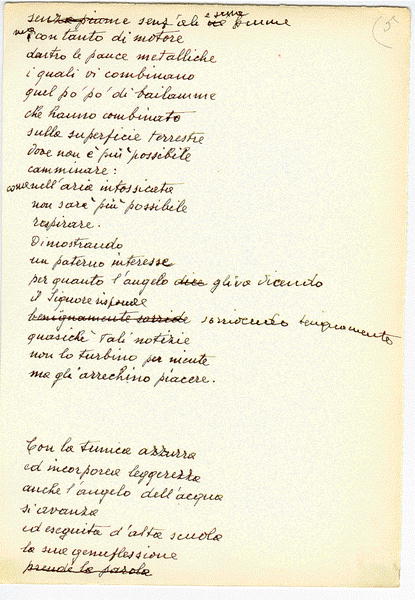 5
senza piume senz'ali e senza piume
ma con tanto di motore
dentro le pance metalliche
i quali vi combinano
quel po' po' di bailamme
che hanno combinato
sulla superficie terrestre
dove non è più possibile
camminare:
come nell'aria intossicata
non sarà più possibile
respirare.
Dimostrando
un paterno interesse
per quanto l'angelo dice gli va dicendo
il Signore risponde
benignamente sorride sorridendo benignamente
quasiché tali notizie
non lo turbino per niente
ma gli arrechino piacere.
Con la tunica azzurra
ed incorporea leggerezza
anche l'angelo dell'acqua
si avanza
ed eseguita d'alta scuola
la sua genuflessione
prende la parola